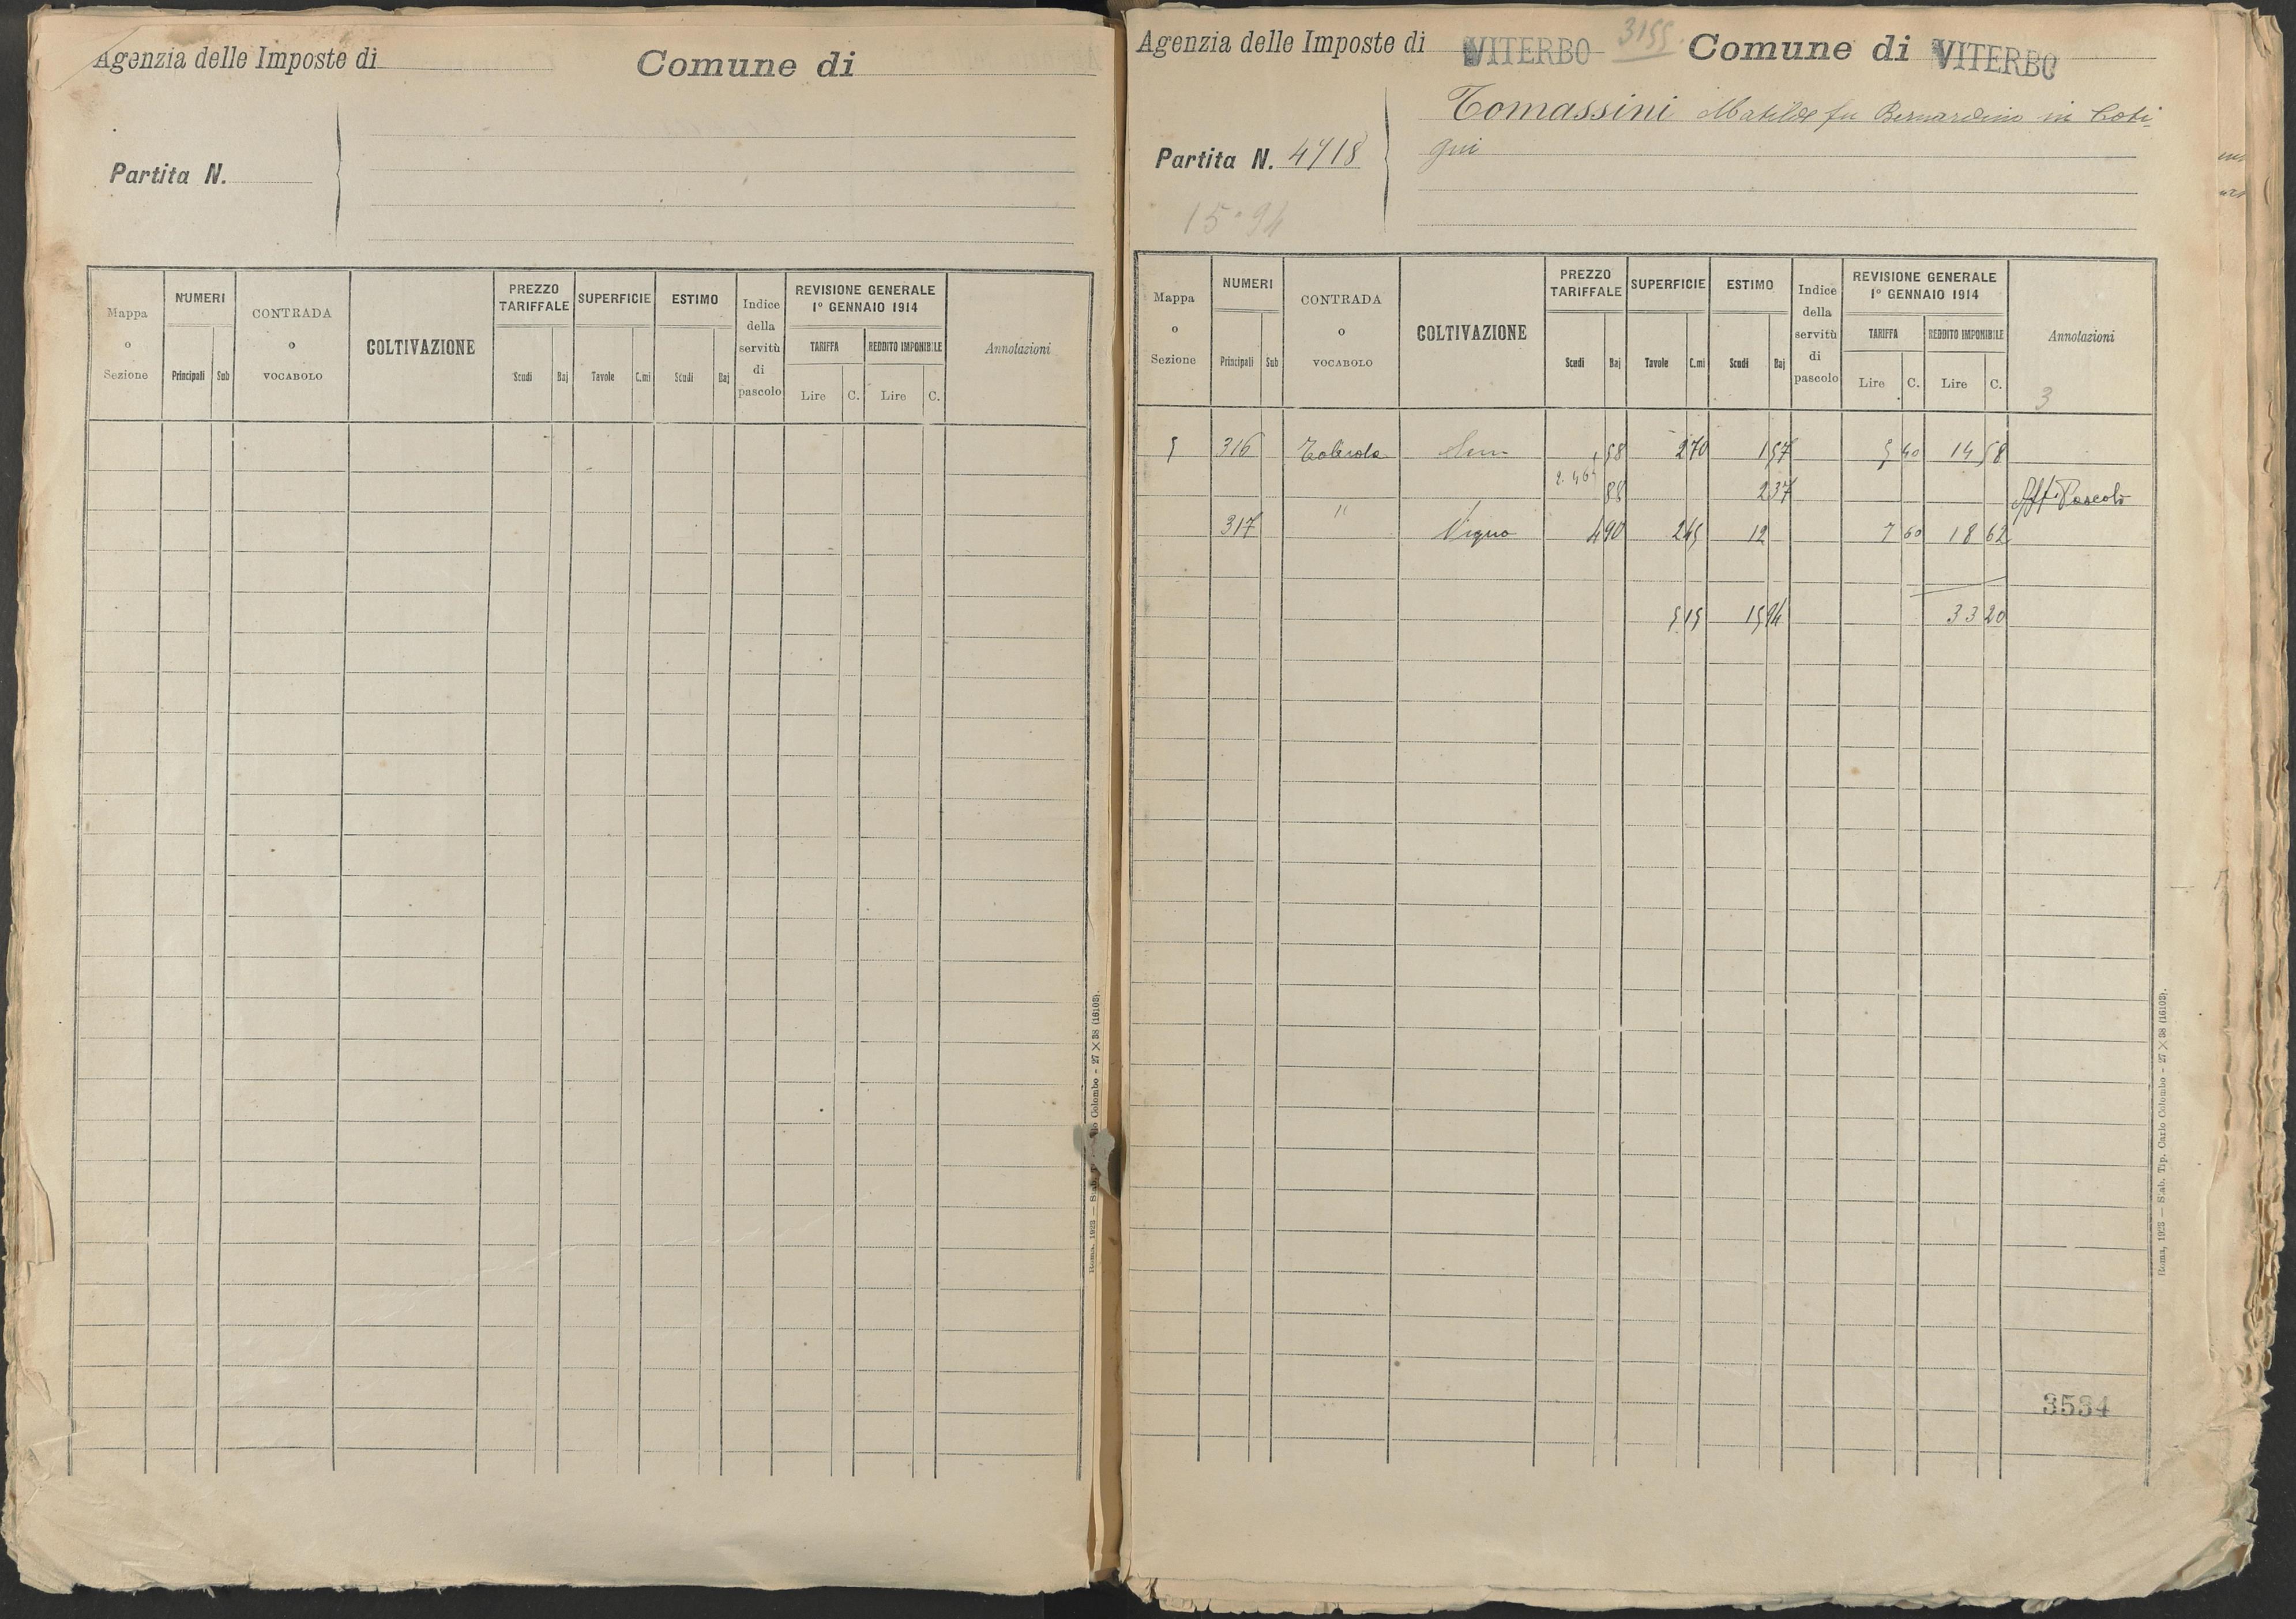 Agenzia delle Imposte di
Comune di
Partita N.
Mappa o Sezione
NUMERI
Principali Sub
CONTRADA o VOCABOLO
COLTIVAZIONE
PREZZO TARIFFALE
Scudi Baj
SUPERFICIE
Tavole C.mi
ESTIMO
Scudi Baj
Indice della servitù di pascolo
REVISIONE GENERALE
1º GENNAIO 1914
TARIFFA
Lire C.
REDDITO IMPONIBILE
Lire C.
Annotazioni
Colombo - 27 X 38 (16103).
Roma, 1923 — Stab.
Agenzia delle Imposte di VITERBO 3155 Comune di VITERBO
Tomassini Matilde fu Bernardino in Coti-
gni
Partita N. 4718
15.94
Mappa o Sezione
NUMERI
Principali Sub
CONTRADA o VOCABOLO
COLTIVAZIONE
PREZZO TARIFFALE
Scudi Baj
SUPERFICIE
Tavole C.mi
ESTIMO
Scudi Baj
Indice della servitù di pascolo
REVISIONE GENERALE
1º GENNAIO 1914
TARIFFA
Lire C.
REDDITO IMPONIBILE
Lire C.
Annotazioni
3
5 316 58 2 70 1 57 5 40 14 58
88 2 37 Aff. Pascolo
317 " Vigna 4 90 2 45 12 7 60 18 62
5 15 15 94 33 20
3534
Roma, 1923 — Stab. Tip. Carlo Colombo - 27 X 38 (16103).